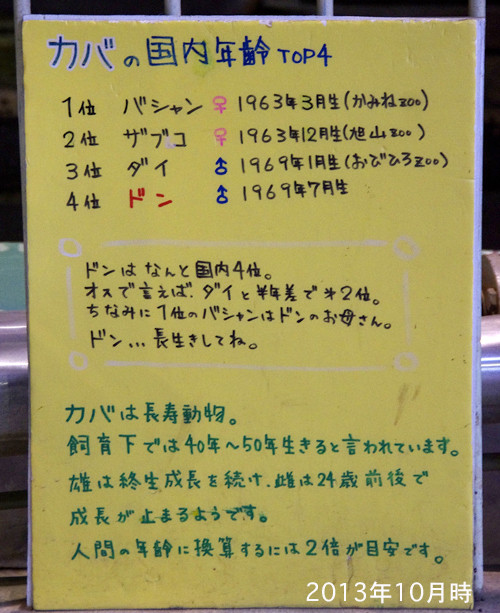 カバの国内年齢TOP4
1位 バシャン ♀ 1963年3月生(かみねzoo)
2位 ザブコ ♀ 1963年12月生(旭山zoo)
3位 ダイ ♂ 1969年1月生(おびひろzoo)
4位 ドン ♂ 1969年7月生
ドンはなんと国内4位。
オスで言えば、ダイと半年差で第2位。
ちなみに1位のバシャンはドンのお母さん。
ドン...長生きしてね。
カバは長寿動物。
飼育下では40年～50年生きると言われています。
雄は終生成長を続け、雌は24歳前後で
成長が止まるようです。
人間の年齢に換算するには2倍が目安です。
2013年10月時